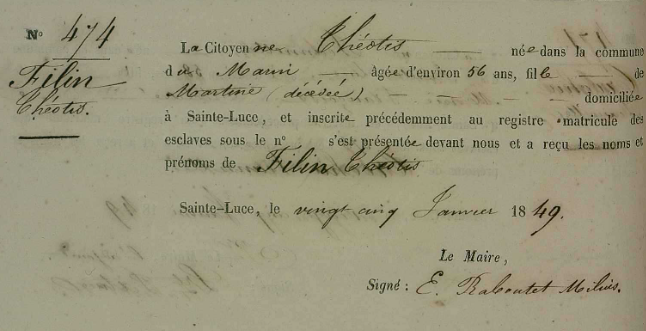 N° 474
Filin
Chéotis.
La Citoyenne Chéotis née dans la commune
du Marin âgée d'environ 56 ans, fille de
Martine (décédée) domiciliée
à Sainte-Luce, et inscrite précédemment au registre matricule des
esclaves sous le n° s'est présentée devant nous et a reçu les noms et
prénoms de Filin Chéotis
Sainte-Luce, le vingt cinq Janvier 1849.
Le Maire,
Signé : E.